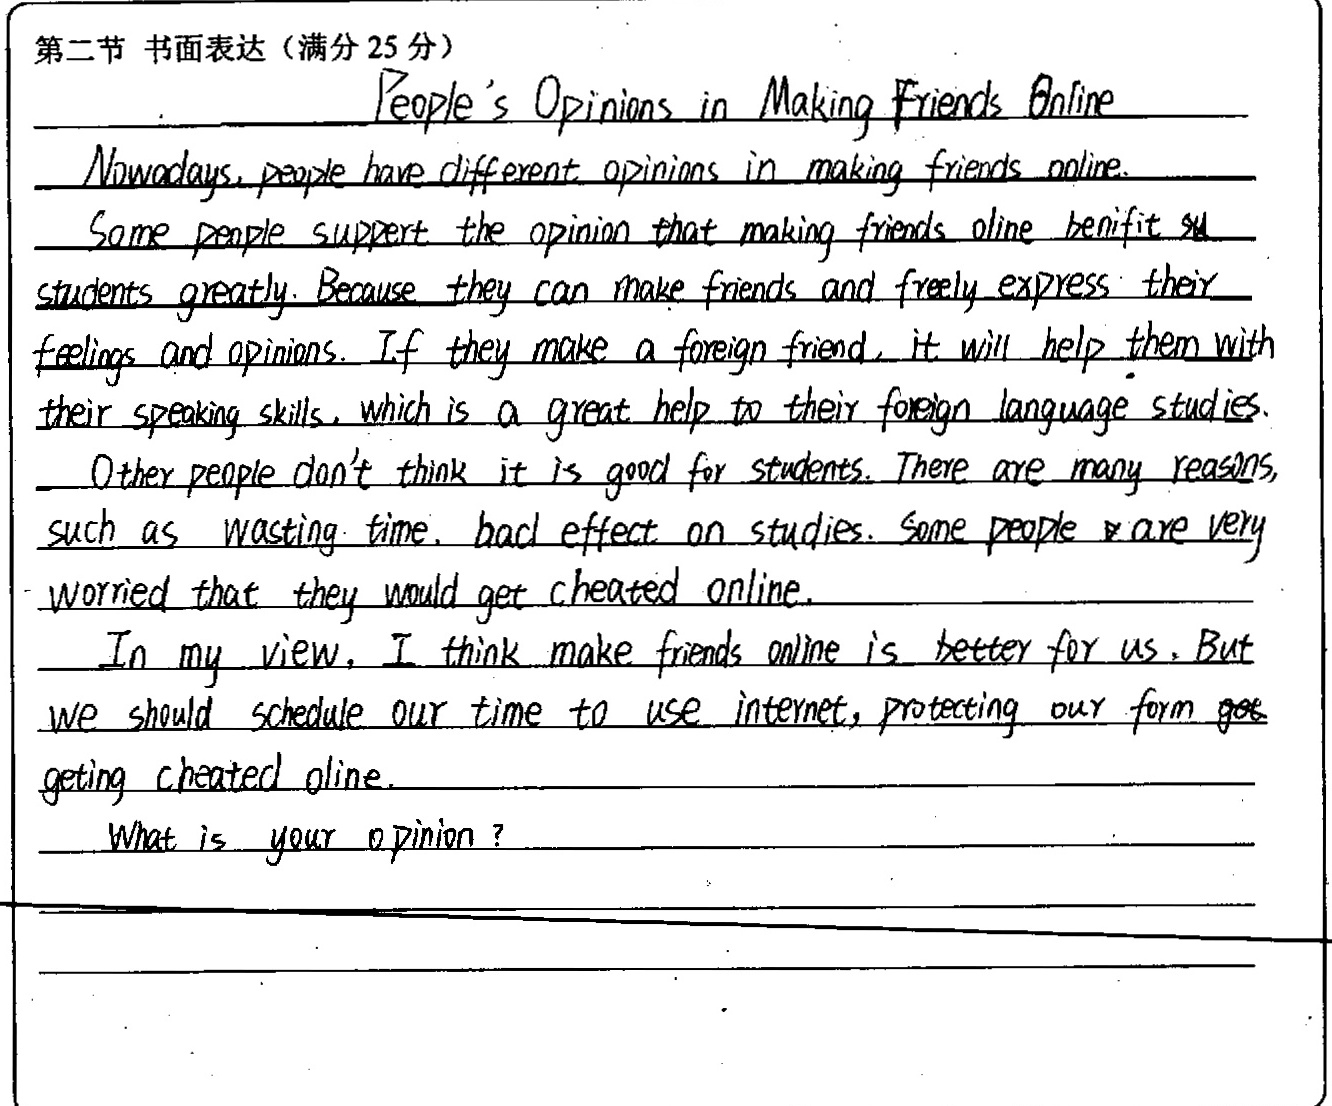 第二节 书面表达（满分 25 分）
People's Opinions in Making Friends Online
Nowadays, people have different opinions in making friends online.
Some people support the opinion that making friends oline benifit
students greatly. Because they can make friends and freely express their
feelings and opinions. If they make a foreign friend, it will help them with
their speaking skills, which is a great help to their foreign language studies.
Other people don't think it is good for students. There are many reasons,
such as wasting time, bad effect on studies. Some people are very
worried that they would get cheated online.
In my view, I think make friends online is better for us. But
we should schedule our time to use internet, protecting our form
geting cheated oline.
What is your opinion?